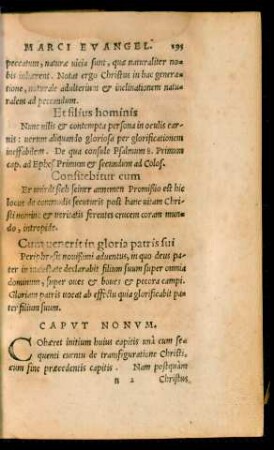 MARCI EVANGEL. 195
peccatum, naturæ vicia sunt, quæ naturaliter no-
bis inhærent. Notat ergo Christus in hac genera-
tione, naturale adulterium & inclinationem natu-
ralem ad peccandum.
Et filius hominis
Nunc vilis & contempta persona in oculis car-
nis: verum aliquando gloriosa per glorificationem
ineffabilem. De qua consule Psalmum 8. Primum
cap. ad Ephes Primum & secundum ad Colos.
Confitebitur eum
Er wirdt sich seiner annemen Promissio est hic
locus de commodis securituris post hanc vitam Chri-
sti nomini & veritatis ferentes crucem coram mun-
do, intrepide.
Cum venerit in gloria patris sui
Periphrasis novissimi adventus, in quo deus pa-
ter in maiestate declarabit filium suum super omnia
dominum, super oves & boves & pecora campi.
Gloriam patris vocat ab effectu quia glorificabit pa-
ter filium suum.
CAPVT NONVM.
Cohæret initium huius capitis unà cum se-
quenti eventu de transfiguratione Christi,
cum fine præcedentis capitis. Nam postquàm
B 2 Christus